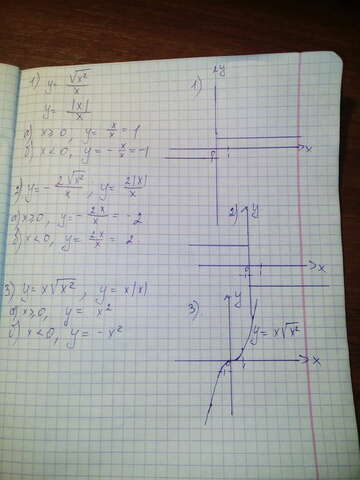 1) y = √x² / x
y = |x| / x
а) x ≥ 0, y = x/x = 1
б) x < 0, y = - x/x = -1
2) y = - 2√x² / x, y = 2|x| / x
а) x ≥ 0, y = - 2x/x = - 2
б) x < 0, y = 2x/x = 2
3) y = x√x², y = x|x|
а) x ≥ 0, y = x²
б) x < 0, y = - x²
1)
y
x
2)
y
x
3)
y
y = x√x²
x